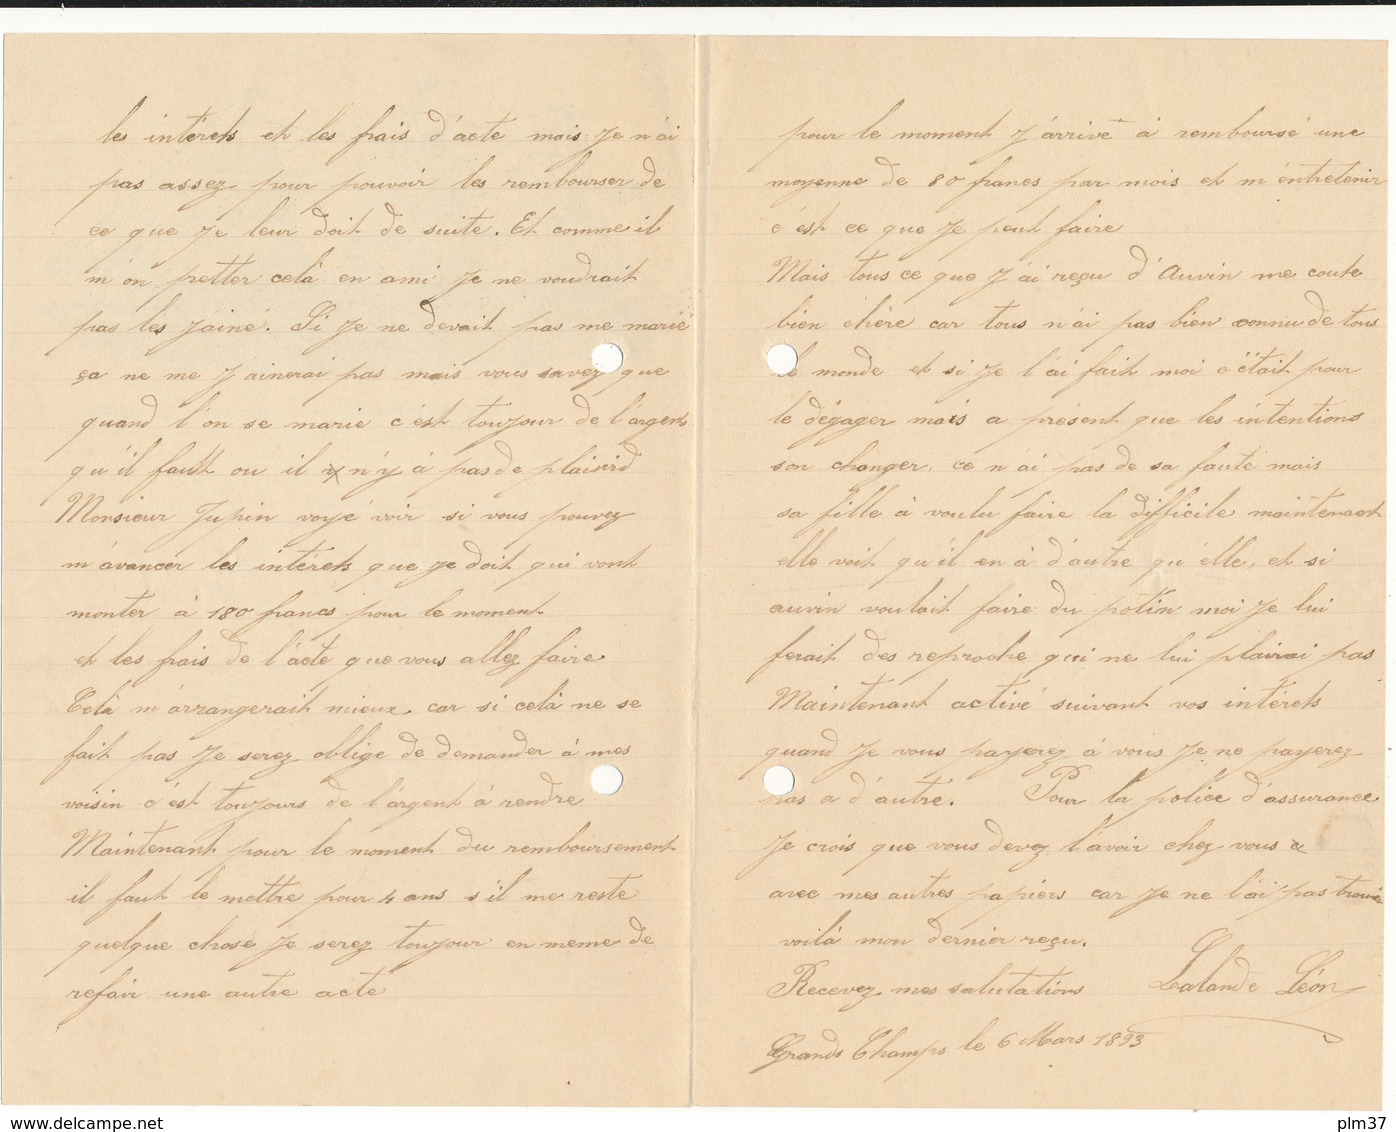 les intérets et les frais d'acte mais je n'ai
pas assez pour pouvoir les rembourser de
ce que je leur doit de suite. Et comme il
m'on pretter celà en ami je ne voudrait
pas les jainé. Si je ne devait pas me marié
ça ne me j'ainerai pas mais vous savez que
quand l'on se marie c'est toujour de l'argent
qu'il fault ou il n'y à pas de plaisird
Monsieur Jupin voyé voir si vous pouvez
m'avancer les intérets que je doit qui vont
monter à 180 francs pour le moment
et les frais de l'acte que vous allez faire
Celà m'arrangerait mieux car si celà ne se
fait pas je serez oblige de demander à mes
voisin c'est toujours de l'argent à rendre
Maintenant pour le moment du remboursement
il faut le mettre pour 4 ans s'il me reste
quelque chose je serez toujour en meme de
refair une autre acte
pour le moment j'arrive à remboursé une
moyenne de 80 francs par mois et m'entretenir
c'est ce que je peut faire
Mais tous ce que j'ai reçu d'Auvin me coute
bien chère car tous n'ai pas bien connu de tous
le monde et si je l'ai fait moi c'était pour
le dégager mais a présent que les intentions
son changer. ce n'ai pas de sa faute mais
sa fille à voulu faire la difficile maintenant
elle voit qu'il en à d'autre qu'elle, et si
auvin voulait faire du potin moi je lui
ferait des reproche qui ne lui plairai pas
Maintenant activé suivant vos intérets
quand je vous payerez à vous je ne payerez
pas a d'autre. Pour la police d'assurance
je crois que vous devez l'avoir chez vous a
avec mes autres papiers car je ne l'ai pas trouvé
voilà mon dernier reçu.
Recevez mes salutations Lalande Léon
Grands Champs le 6 Mars 1893
www.delcampe.net
plm37